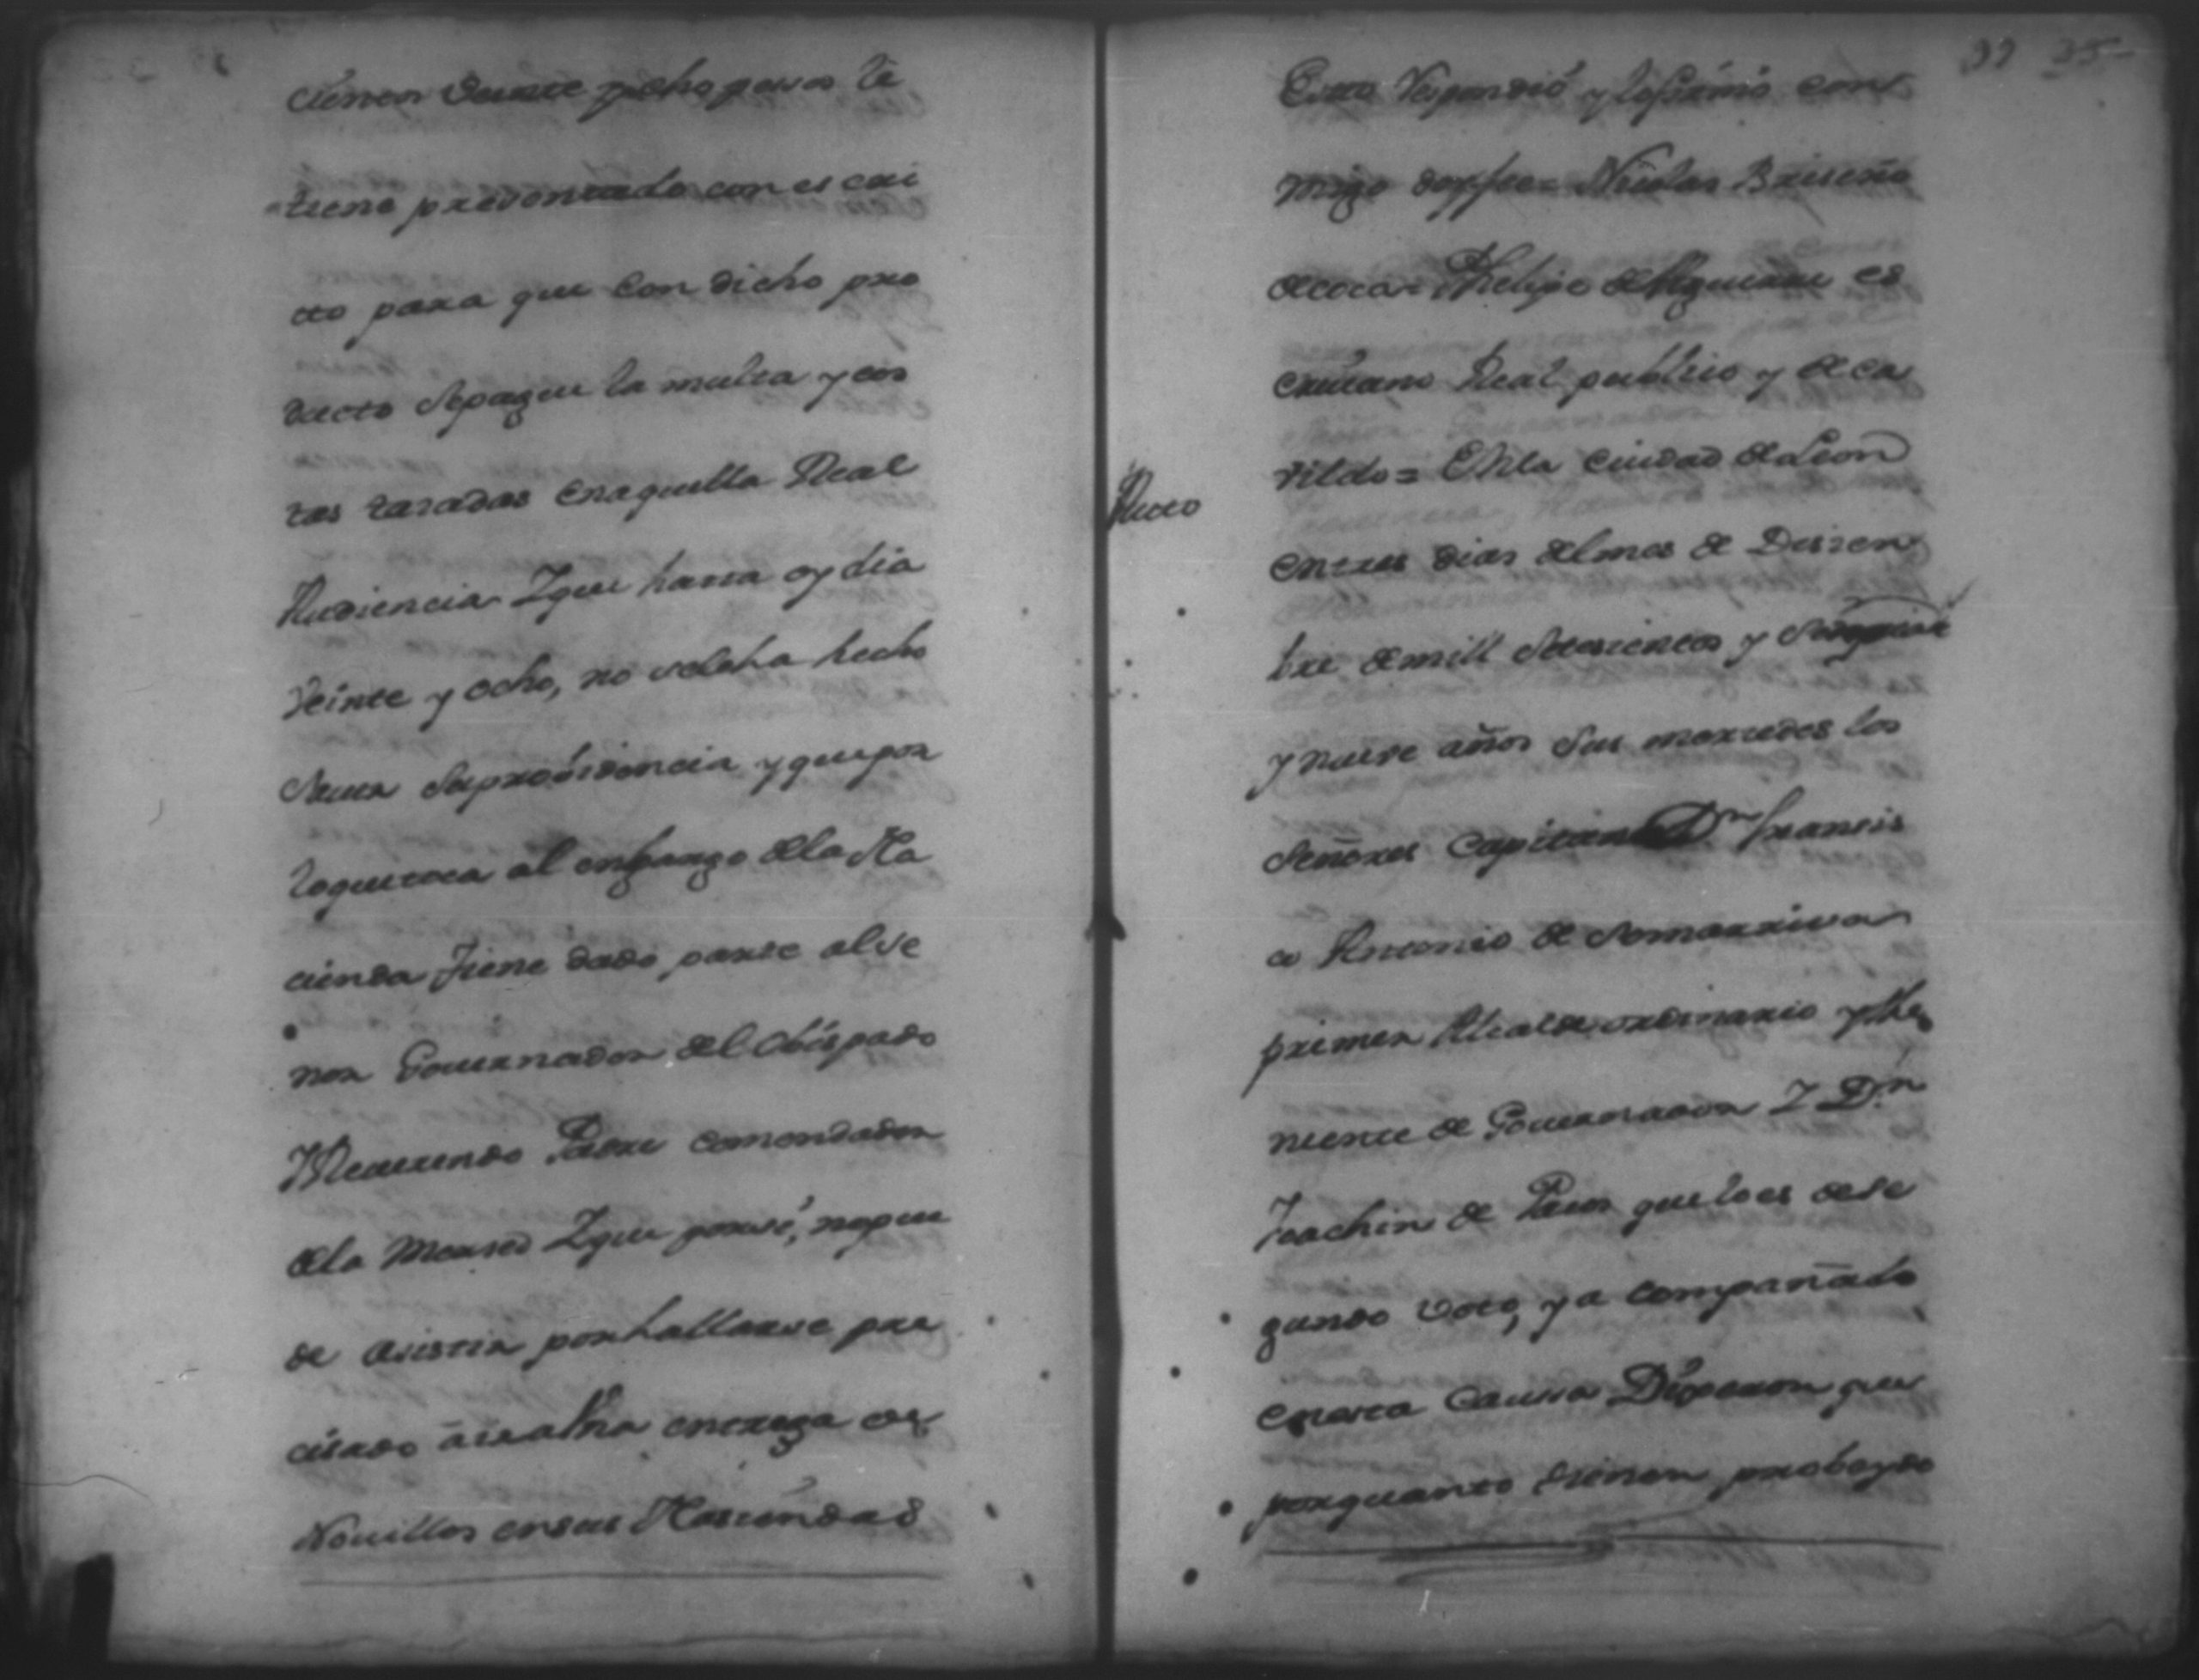 cienen Veinte y ocho pesos le
tiene presentado con escri
tto para que Con dicho pro
ducto Sepague la multa y cos
tas tasadas enaquella Real
Audiencia Yque hasta oydia
Veinte y ocho, no seleha hecho
Sauer Suprovidencia yquepor
loquetoca al enbargo dela Ha
cienda tiene dado parte alse
ñor Gouernador del Obispado
YReuerendo Padre comendador
dela Mersed Yque porsi, nopue
de asistir porhallarse pre
cisado a una entrega de
Nouillos ensus Hasiendas
39 35
Esto Respondió y lofirmó con
migo doyfee= Nicolas Briseño
decoca= Phelipe deAguirre es
criuano Real publico y deca
vildo= Enla Ciudad deLeon
Auto
entres dias delmes de Dicien
bre demill Setesientos y
y nueve años Sus mercedes los
Señores Capitan Dn francis
co Antonio de Somarriua
primer Alcalde ordinario yThe
niente de Gouernador Y Dn
Joachin de que loes dese
gundo voto, ya Compañado
enesta Causa Dixeron que
porquanto tienen proboydo